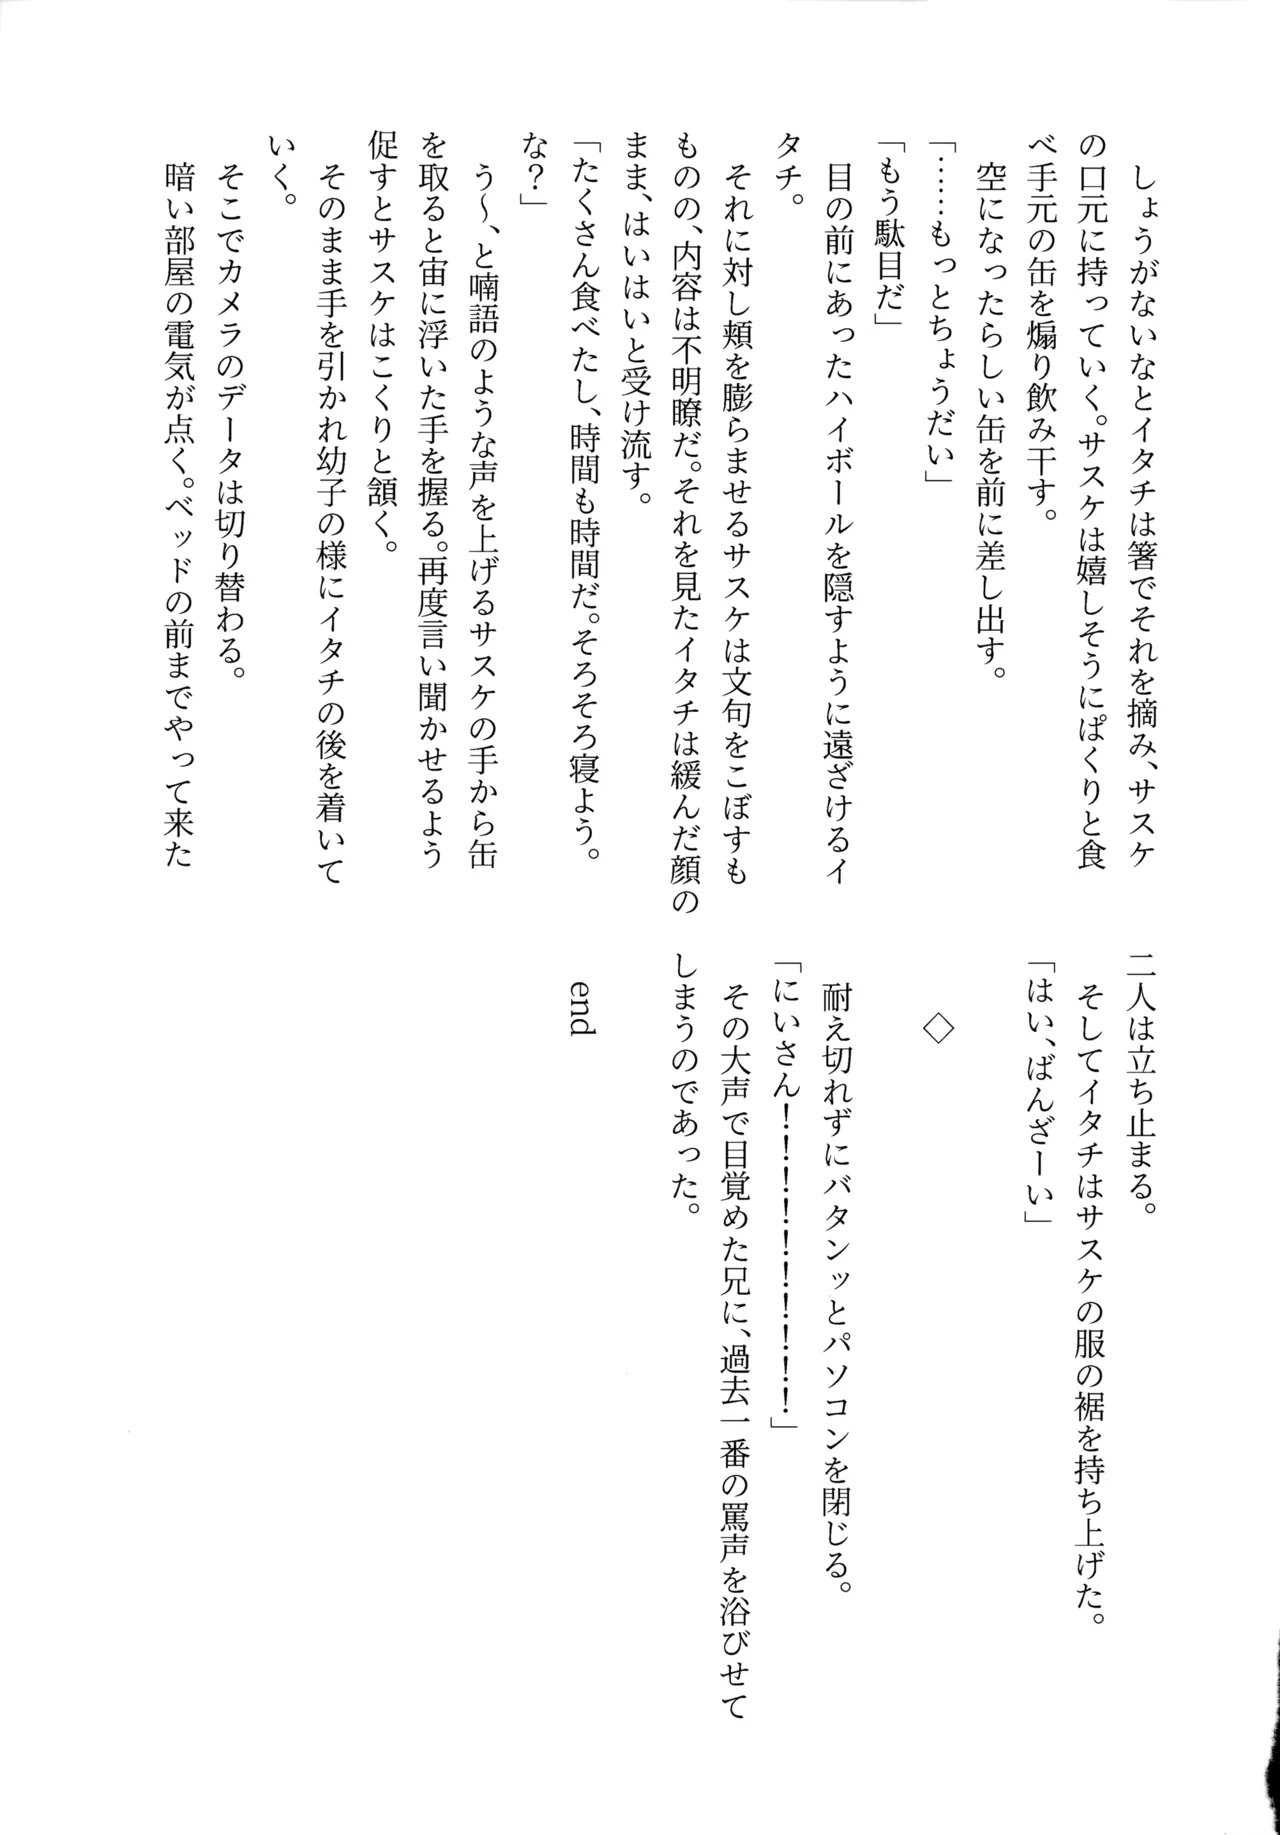 しょうがないなとイタチは箸でそれを摘み、サスケ
の口元に持っていく。サスケは嬉しそうにぱくりと食
べ手元の缶を煽り飲み干す。
空になったらしい缶を前に差し出す。
「……もっとちょうだい」
「もう駄目だ」
目の前にあったハイボールを隠すように遠ざけるイ
タチ。
それに対し頬を膨らませるサスケは文句をこぼすも
ものの、内容は不明瞭だ。それを見たイタチは緩んだ顔の
まま、はいはいと受け流す。
「たくさん食べたし、時間も時間だ。そろそろ寝よう。
な?」
う〜、と喃語のような声を上げるサスケの手から缶
を取ると宙に浮いた手を握る。再度言い聞かせるよう
促すとサスケはこくりと頷く。
そのまま手を引かれ幼子の様にイタチの後を着いて
いく。
そこでカメラのデータは切り替わる。
暗い部屋の電気が点く。ベッドの前までやって来た
二人は立ち止まる。
そしてイタチはサスケの服の裾を持ち上げた。
「はい、ばんざーい」
◇
耐え切れずにバタンッとパソコンを閉じる。
「にいさん！！！！！！！！！！」
その大声で目覚めた兄に、過去一番の罵声を浴びせて
しまうのであった。
end